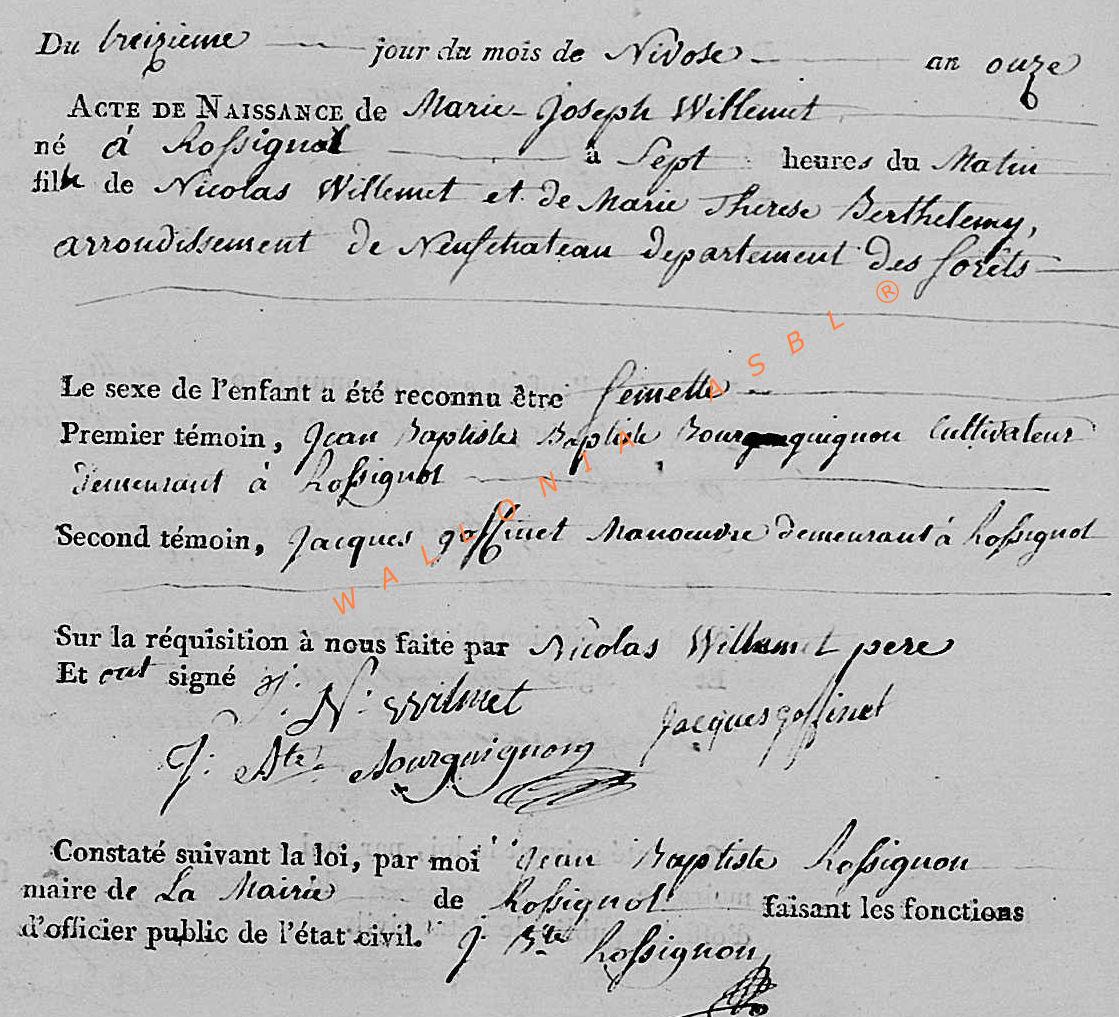 Du treizieme jour du mois de Nivose an onze
ACTE DE NAISSANCE de Marie-Joseph Willemet
né à Rossignol à Sept heures du Matin
fille de Nicolas Willemet et de Marie Therese Berthelemy,
arrondissement de Neufchateau departement des forêts
Le sexe de l'enfant a été reconnu être femelle
Premier témoin, Jean Baptiste Baptiste Bourguignon Cultivateur
demeurant à Rossignol
Second témoin, Jacques goffinet Manoeuvre demeurant à Rossignol
WALLONIA ASBL ®
Sur la réquisition à nous faite par Nicolas Willemet pere
Et ont signé
N. Wilmet
Jacques goffinet
J: Bte Bourguignon
Constaté suivant la loi, par moi Jean Baptiste Rossignon
maire de La Mairie de Rossignol faisant les fonctions
d'officier public de l'état civil. J. Bte Rossignon